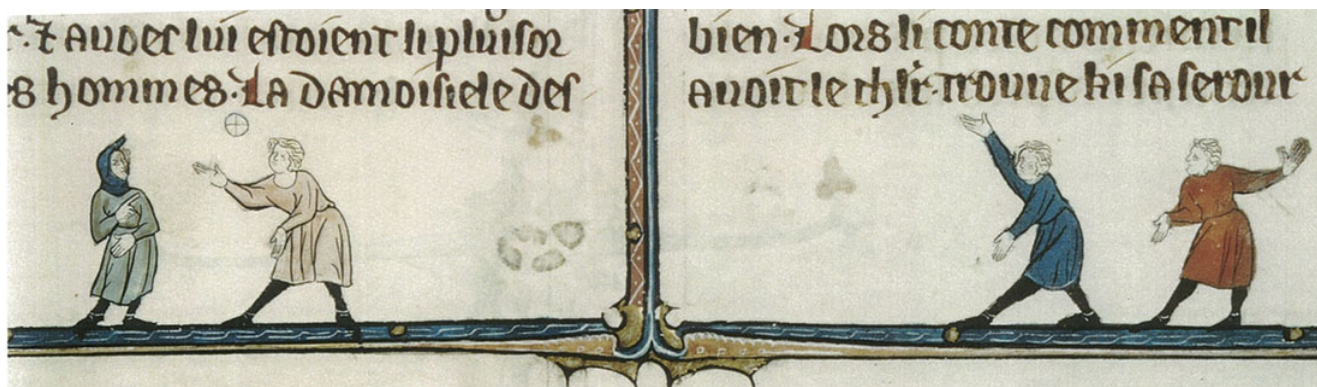 r. ⁊ auoec lui estoient li pluisor
es hommes. La damoisiele des
bien. Lors li conte comment il
auoit le chlr. trouue ki sa serour